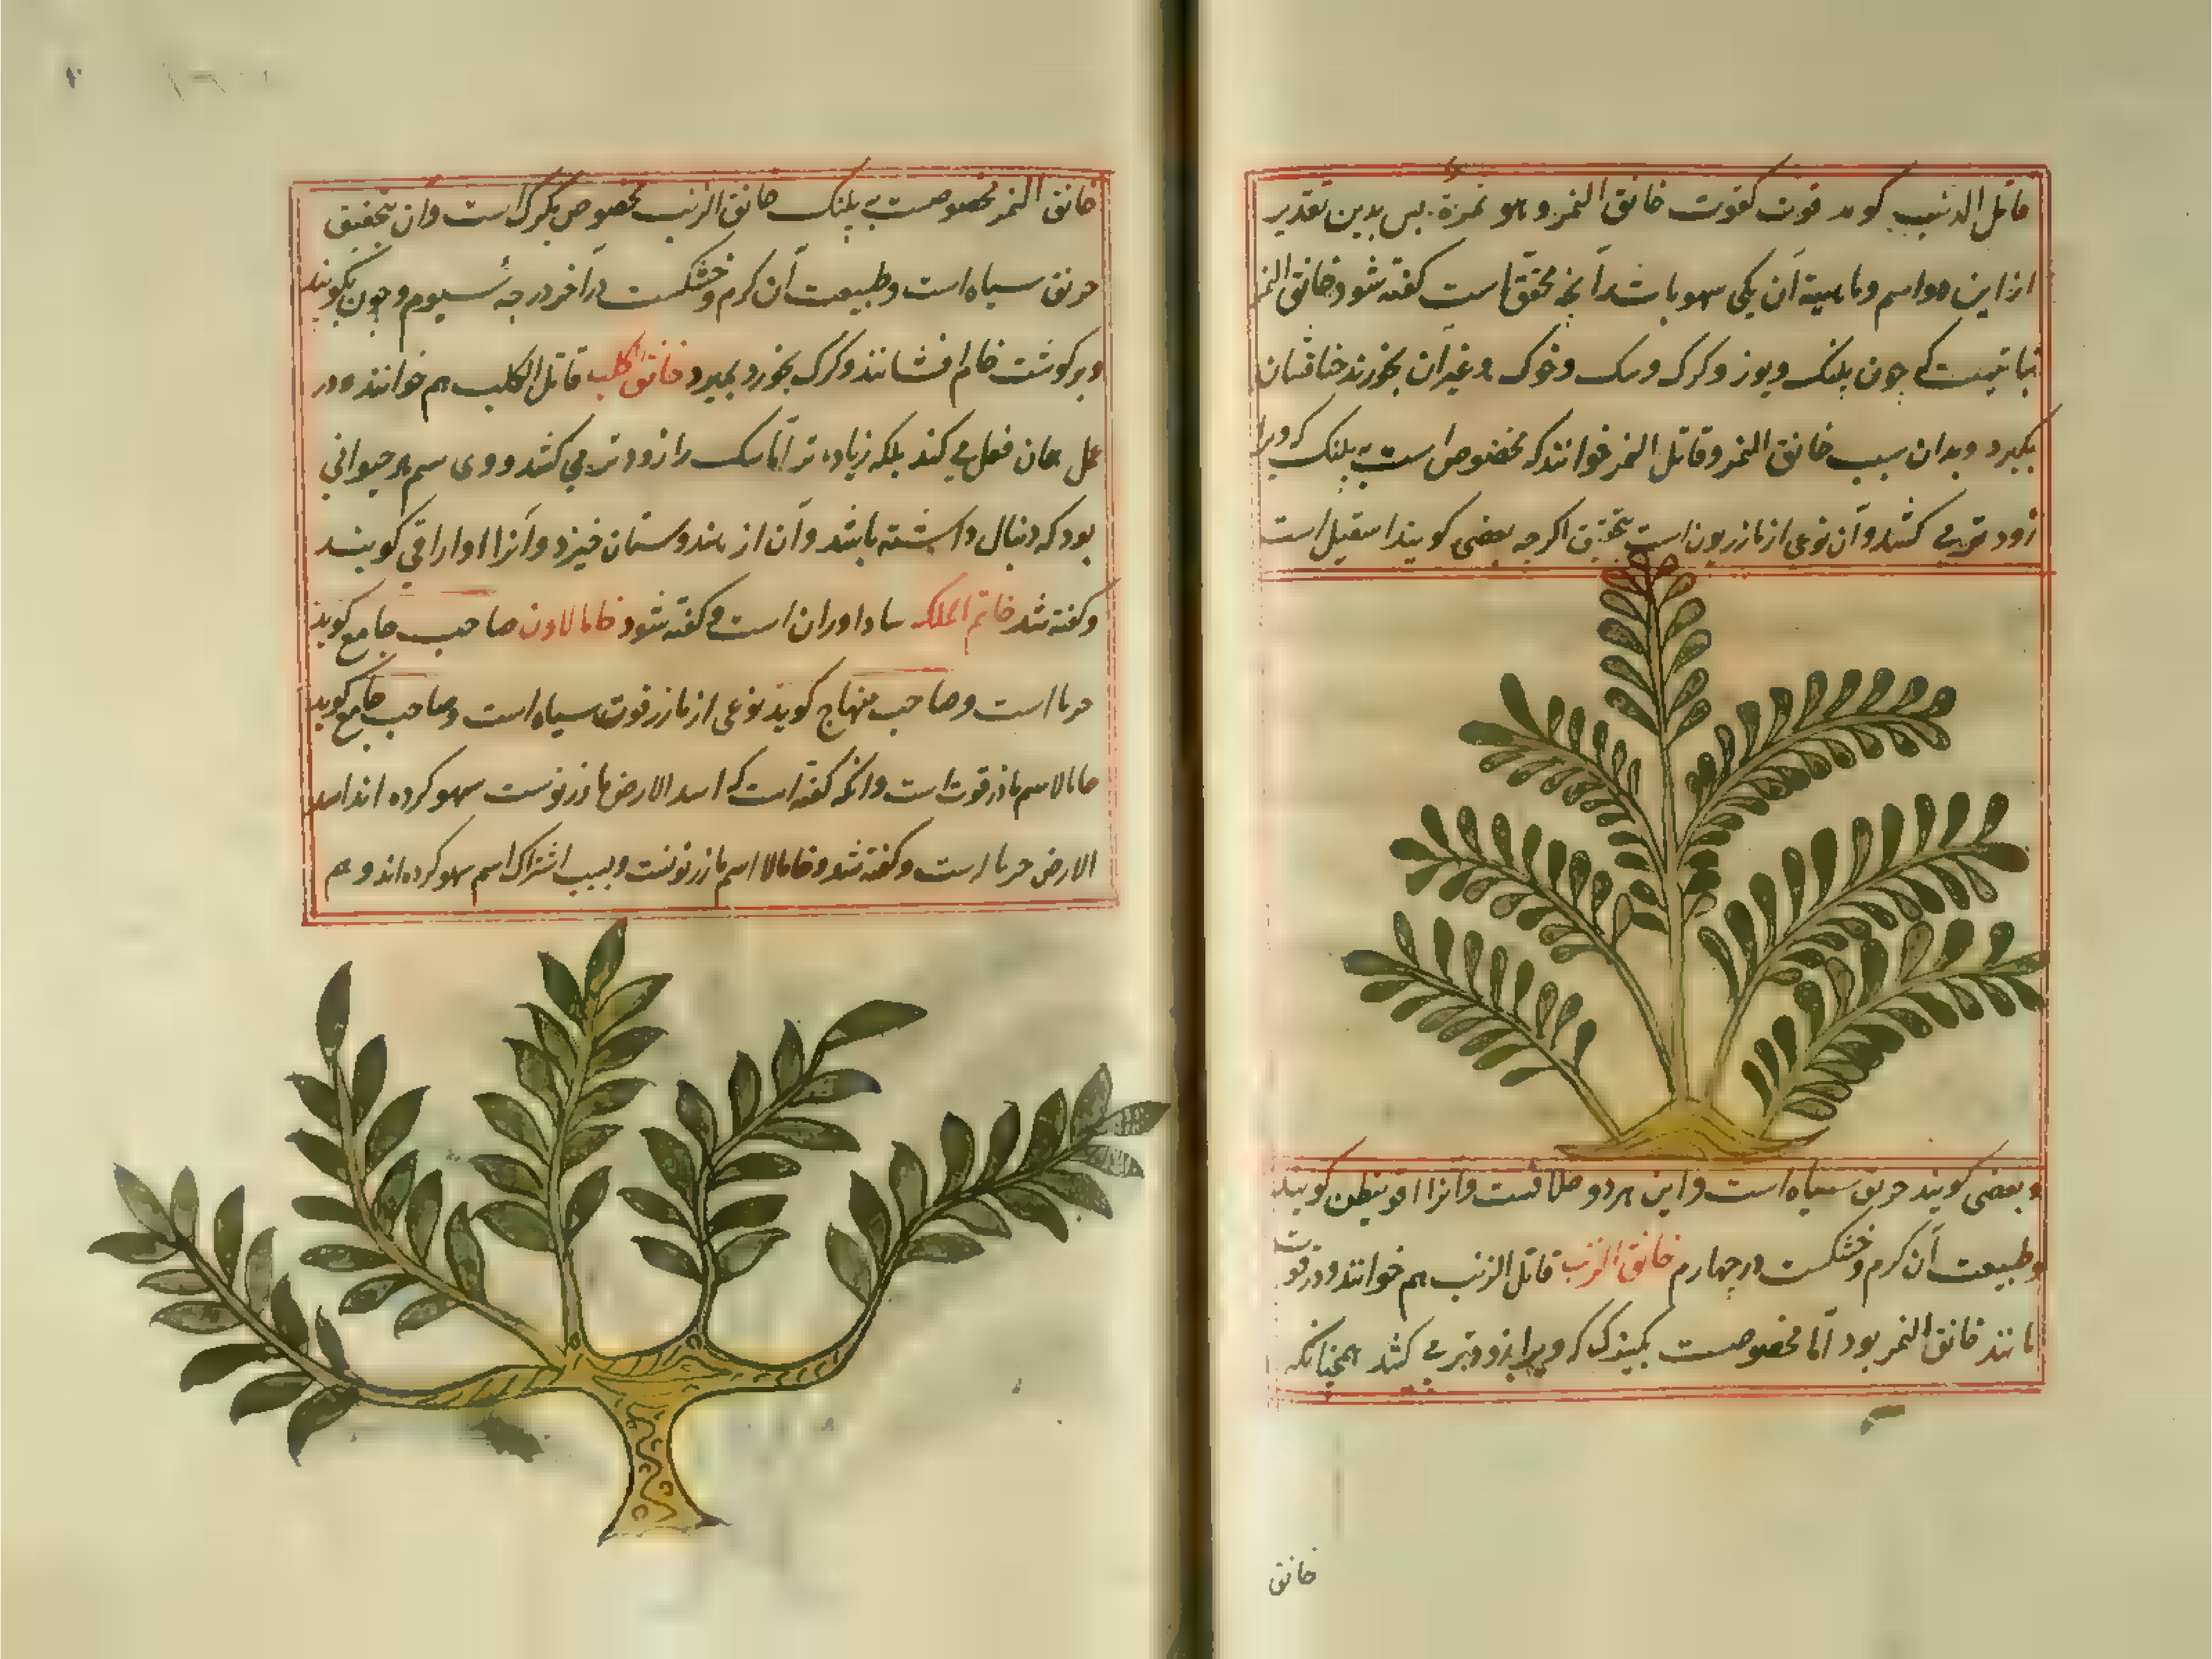 قاتل الذئب گوید قوت کقوت خانق النمر و هو نمرة پس بدین تقدیر
ازاین دو اسم و ماهیة آن یکی سهو باشد آنچه محقق است گفته شود خانق النمر
نباتیست که چون پلنک و یوز و کرک و سک و خوک و غیر آن بخورند خناقشان
بگیرد و بدان سبب خانق النمر و قاتل النمر خوانند که مخصوص است به پلنک که ویرا
زودتر می کشد و آن نوعی از مازریون است بتحقیق اکرچه بعضی کویند اسقیل است
و بعضی کویند خربق سیاه است و این هر دو خلافست و آنرا اقونیطن کویند
و طبیعت آن کرم و خشکست در چهارم خانق الذئب قاتل الذئب هم خوانند و در قوت
مانند خانق النمر بود اما مخصوصست بکرک که ویرا زودتر می کشد همچنانکه
خانق
خانق النمر مخصوصست به پلنک خانق الذئب مخصوص بکرک است و آن بتحقیق
خربق سیاه است و طبیعت آن کرم و خشکست در آخر درجه سیوم و چون بکوبند
و بر کوشت خام افشانند و کرک بخورد بمیرد خانق الکلب قاتل الکلب هم خوانند و در
عمل همان فعل می کند بلکه زیاده تر اما سک را زودتر می کشد و وی سم هر حیوانی
بود که دنبال داشته باشد و آن از هندوستان خیزد و آنرا اداراقی کویند
و کفته شد خاتم الملک ساداوران است و کفته شود خامالاون صاحب جامع کوید
حربا است و صاحب منهاج کوید نوعی از مازریون سیاه است و صاحب جامع کوید
خامالا اسم مازریونست و آنکه کفته است که اسد الارض مازریونست سهو کرده اند اسد
الارض حربا است و کفته شود و خامالا اسم مازریونست و بسبب اشتراک اسم سهو کرده اند و هم